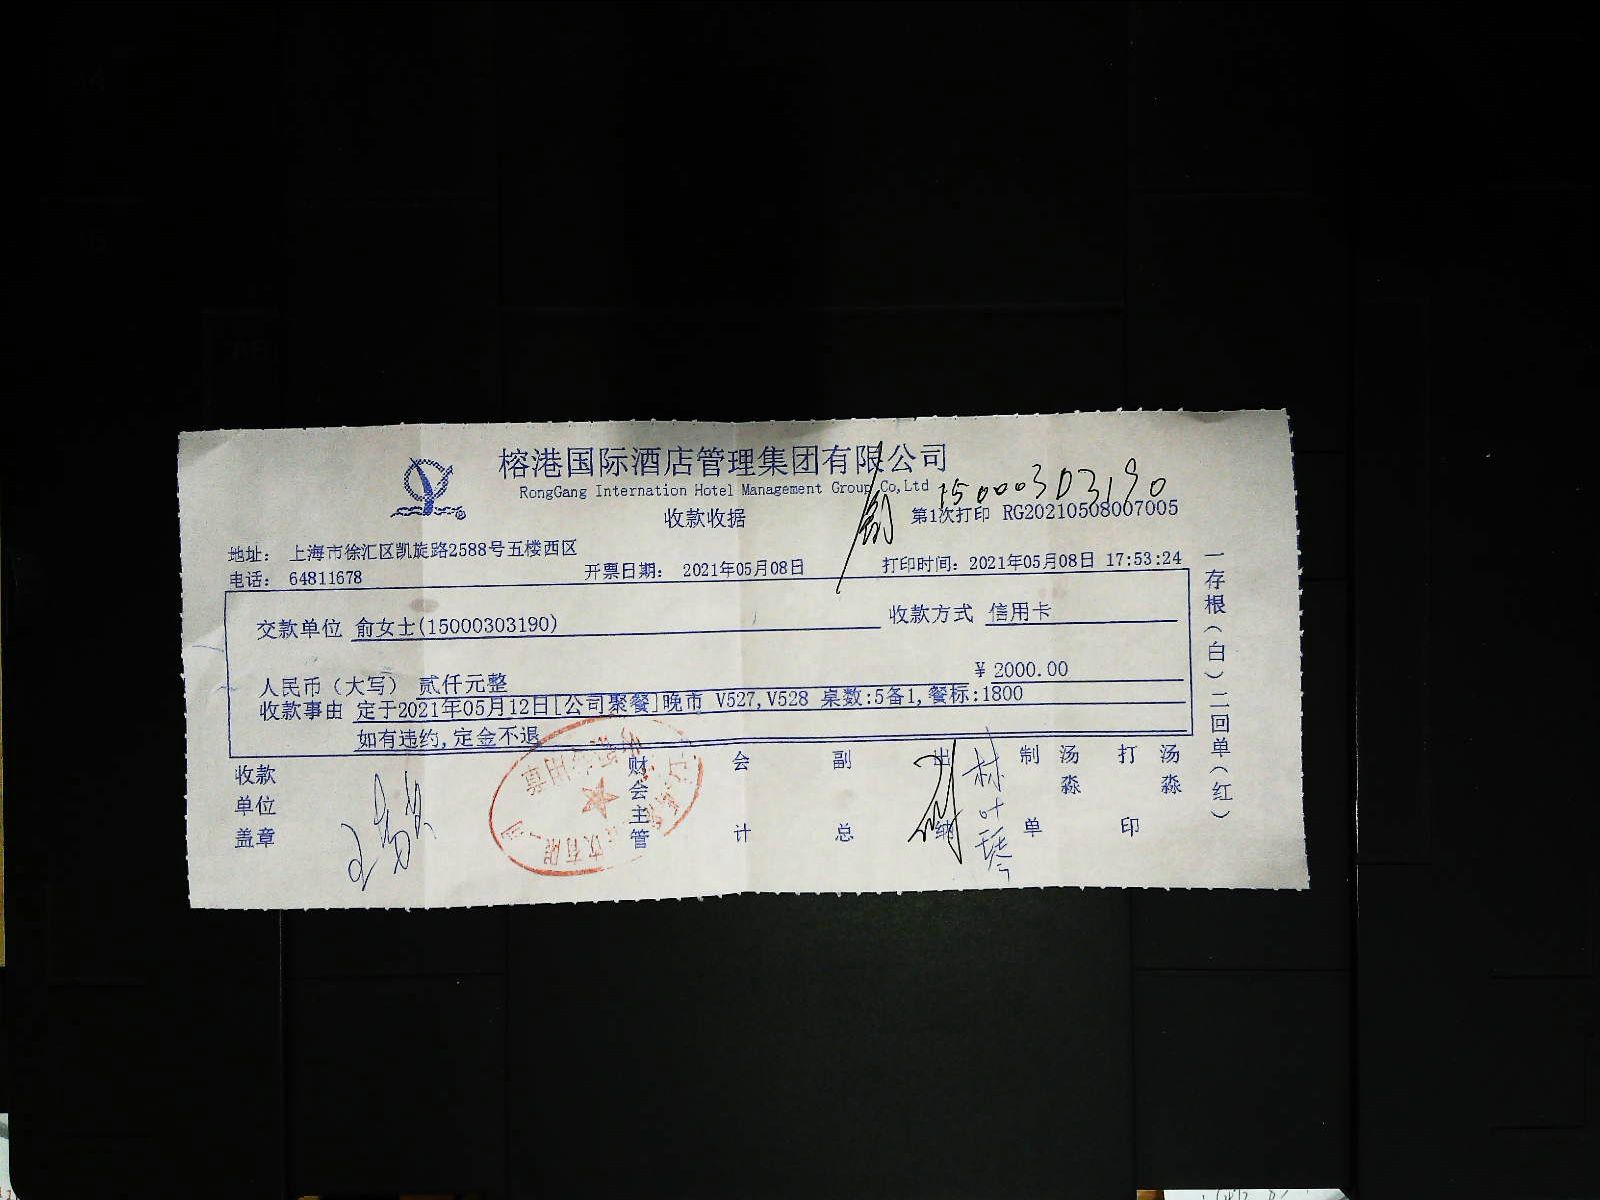 榕港国际酒店管理集团有限公司
RongGang Internation Hotel Management Group Co,Ltd
15000303190
收款收据
第1次打印 RG20210508007005
地址： 上海市徐汇区凯旋路2588号五楼西区
电话： 64811678
开票日期： 2021年05月08日
打印时间：2021年05月08日 17:53:24
交款单位 俞女士(15000303190)
收款方式 信用卡
人民币（大写） 贰仟元整
¥ 2000.00
收款事由 定于2021年05月12日[公司聚餐]晚市 V527,V528 桌数:5备1,餐标:1800
如有违约,定金不退
收款单位盖章
财会主管
会计
副总
出纳
林叶琴
制单
汤淼
打印
汤淼
一存根（白）二回单（红）